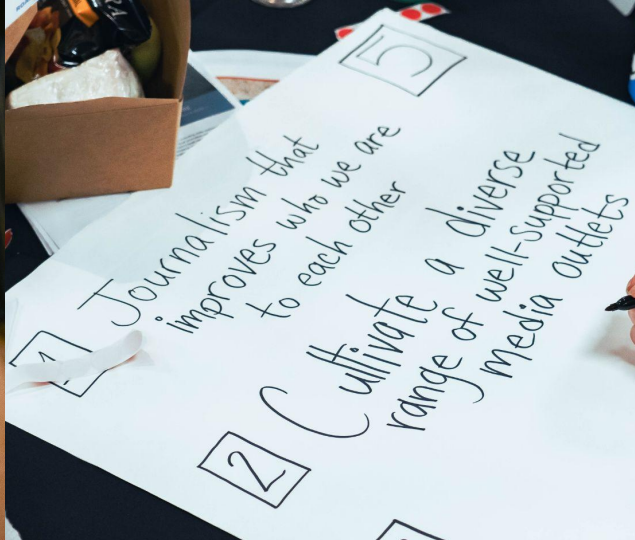 5
1 Journalism that
improves who we are
to each other
2 Cultivate a diverse
range of well-supported
media outlets